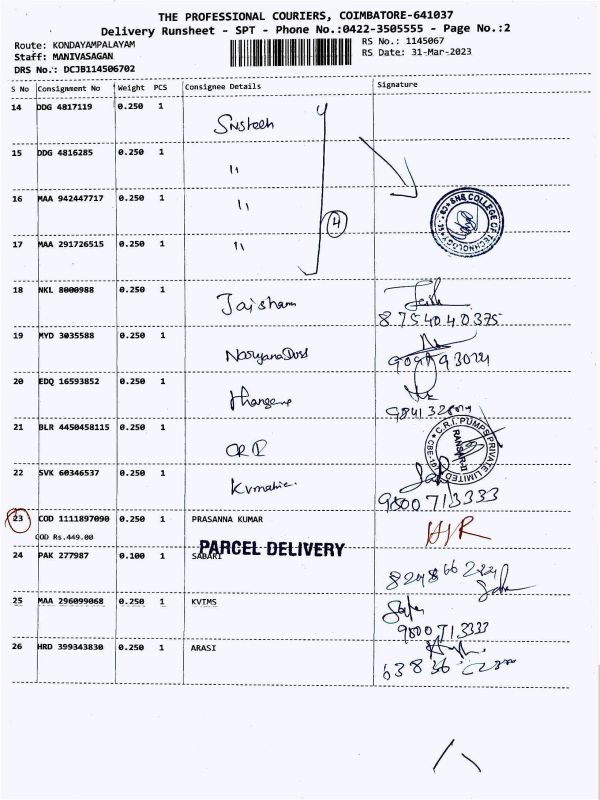 THE PROFESSIONAL COURIERS, COIMBATORE-641037
Delivery Runsheet - SPT - Phone No.:0422-3505555 - Page No.:2
Route: KONDAYAMPALAYAM RS No.: 1145067
Staff: MANIVASAGAN RS Date: 31-Mar-2023
DRS No.: DCJB114506702
S No Consignment No Weight PCS Consignee Details Signature
14 DDG 4817119 0.250 1 Snstech
15 DDG 4816285 0.250 1 "
16 MAA 942447717 0.250 1 "
SNS COLLEGE OF TECHNOLOGY
4
17 MAA 291726515 0.250 1 "
18 NKL 8000988 0.250 1 Jaisham
8754040375
19 MYD 3035588 0.250 1
20 EDQ 16593852 0.250 1
21 BLR 4450458115 0.250 1 CRI
C.R.I. PUMPS PRIVATE LIMITED
22 SVK 60346537 0.250 1
9600713333
23 COD 1111897090 0.250 1 PRASANNA KUMAR
COD Rs.449.00
PARCEL DELIVERY
24 PAK 277987 0.100 1 SABARI
25 MAA 296099068 0.250 1 KVIMS
9600713333
26 HRD 399343830 0.250 1 ARASI